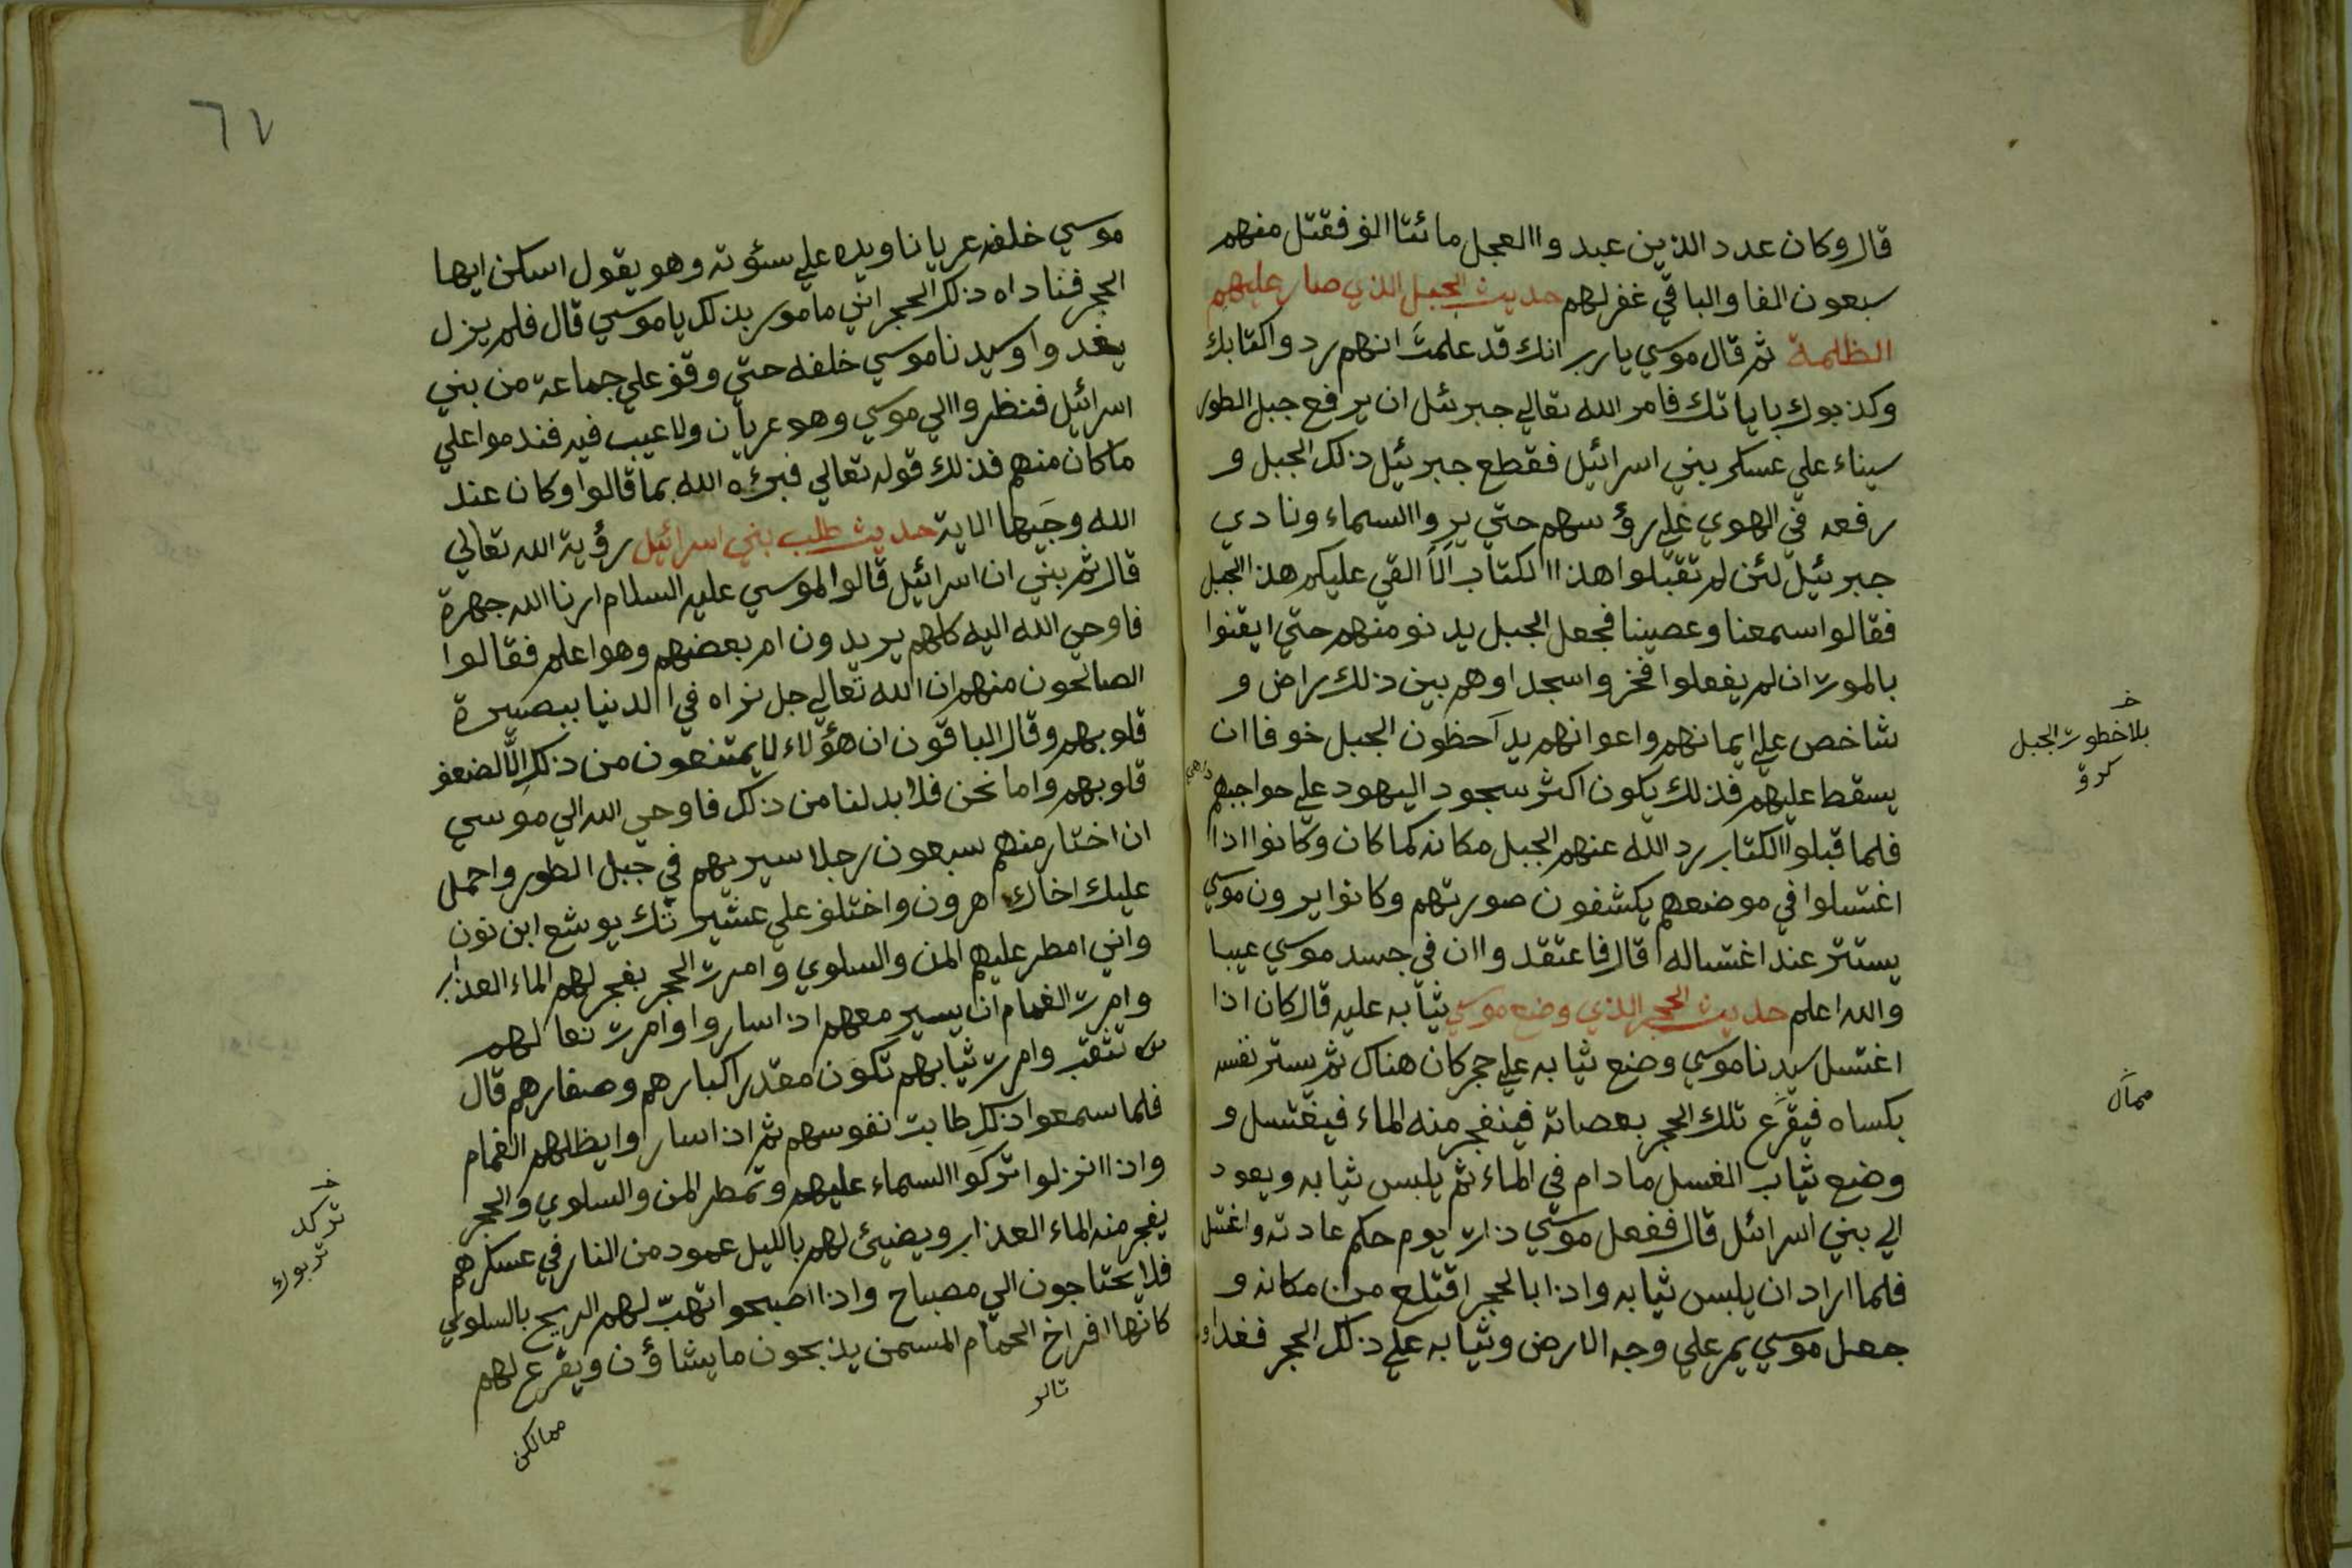 قال وكان عدد الذين عبدوا العجل مائتا الف فقتل منهم
سبعون الفا والباقي غفر لهم حديث الجبل الذي صار عليهم
الظلمة ثم قال موسي يا رب انك قد علمت انهم ردوا كتابك
وكذبوك باياتك فامر الله تعالي جبرئل ان يرفع جبل الطور
سيناء علي عسكر بني اسرائيل فقطع جبرئيل ذلك الجبل و
رفعه في الهوي علي رؤسهم حتي يروا السماء ونادي
جبرئيل لئن لم تقبلوا هذا الكتاب الا القي عليكم هذا الجبل
فقالوا سمعنا وعصينا فجعل الجبل يدنو منهم حتي ايقنوا
بالموت ان لم يفعلوا فخروا سجدا وهم بين ذلك راض و
شاخص علي ايمانهم واعوانهم يدآحظون الجبل خوفا ان
يسقط عليهم فذلك يكون اكثر سجود اليهود علي حواجبهم
فلما قبلوا الكتاب رد الله عنهم الجبل مكانه كما كان وكانوا اذا
اغتسلوا في موضعهم يكشفون صورتهم وكانوا يرون موسي
يستتر عند اغتساله قال فاعتقدوا ان في جسد موسي عيبا
والله اعلم حديث الحجر الذي وضع موسي ثيابه عليه قال كان اذا
اغتسل سيدنا موسي وضع ثيابه علي حجر كان هناك ثم يستر نفسه
بكساه فيقرع تلك الحجر بعصاته فينفجر منه الماء فيغتسل و
وضع ثياب الغسل ما دام في الماء ثم يلبس ثيابه ويعود
الي بني اسرائل قال ففعل موسي ذات يوم حكم عادته واغتسل
فلما اراد ان يلبس ثيابه واذا بالحجر اقتلع من مكانه و
جعل موسي يمر علي وجه الارض وثيابه علي ذلك الحجر فغدا
بلاخطوت الجبل
كرق
ممآل
٦٧
موسي خلفه عريانا ويده علي سئوته وهو يقول اسكن ايها
الحجر فناداه ذلك الحجر اني مامور بذلك يا موسي قال فلم يزل
يغدوا وسيدنا موسي خلفه حتي وقف علي جماعة من بني
اسرائيل فنظروا الي موسي وهو عريان ولا عيب فيه فندموا علي
ما كان منهم فذلك قوله تعالي فبرئه الله بما قالوا وكان عند
الله وجيها الاية حديث طلب بني اسرائيل رؤية الله تعالي
قال ثم بني ان اسرائيل قالوا لموسي عليه السلام ارنا الله جهرة
فاوحي الله اليه كلهم يريدون ام بعضهم وهو اعلم فقالوا
الصالحون منهم ان الله تعالي جل نراه في الدنيا ببصيرة
قلوبهم وقال الباقون ان هؤلاء لا يمتنعون من ذلك الا لضعف
قلوبهم واما نحن فلا بد لنا من ذلك فاوحي الله الي موسي
ان اختار منهم سبعون رجلا سير بهم في جبل الطور واحمل
عليك اخاك اهرون واختلف علي عشيرتك يوشع ابن نون
واني امطر عليهم المن والسلوي وامرت الحجر يفجر لهم الماء العذاب
وامرت الغمام ان يسير معهم اذا ساروا وامرت نعالهم
تنقب وامرت ثيابهم تكون مقدر اكبارهم وصغارهم قال
فلما سمعوا ذلك طابت نفوسهم ثم اذا ساروا يظلهم الغمام
واذا نزلوا تركوا السماء عليهم وتمطر المن والسلوي والحجر
يفجر منه الماء العذاب ويضيئ لهم بالليل عمود من النار في عسكرهم
فلا يحتاجون الي مصباح واذا اصبحوا تهب لهم الريح بالسلوي
كانها افراخ الحمام المسمن يذبحون ما يشاؤن ويقرع لهم
تركد
تربوك
ممالكن